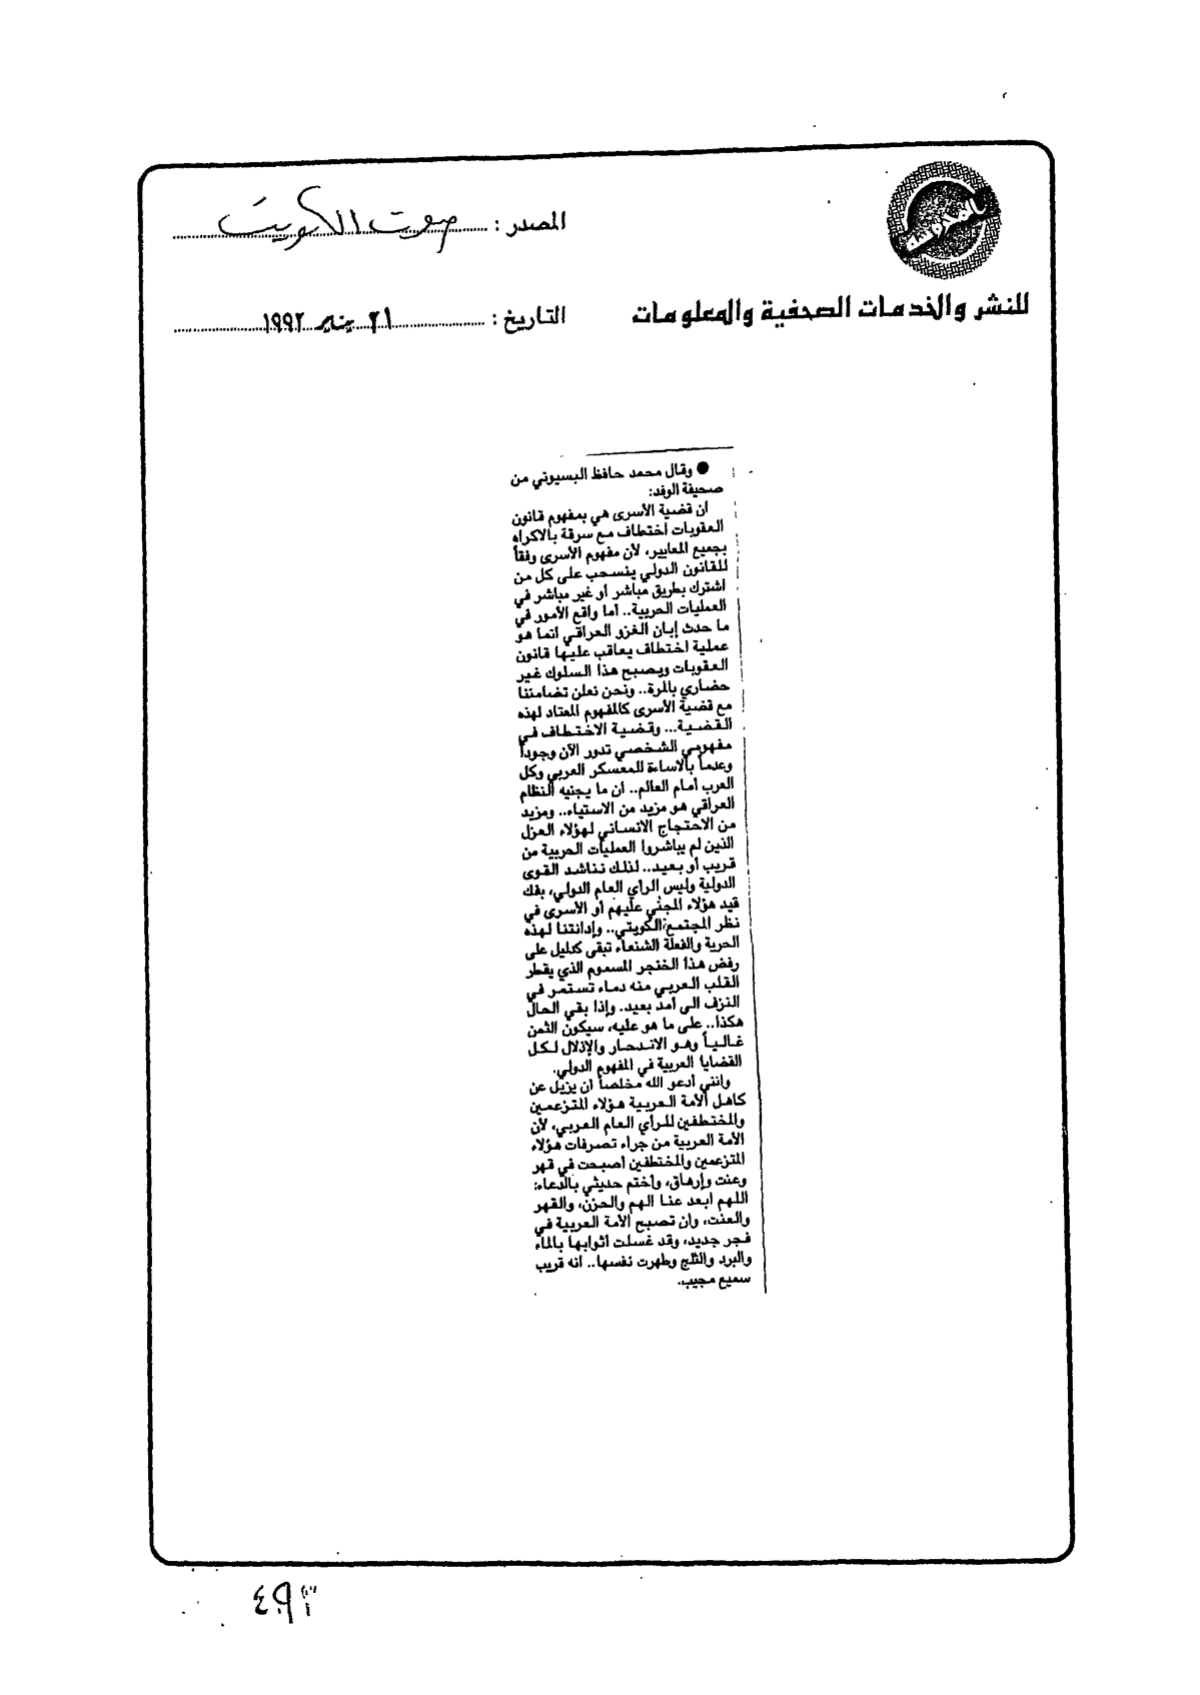 المصدر : صوت الكويت
للنشر والخدمات الصحفية والمعلومات
التاريخ : ٢١ يناير ١٩٩٢
● وقال محمد حافظ البسيوني من
صحيفة الوفد:
ان قضية الأسرى هي بمفهوم قانون
العقوبات اختطاف مع سرقة بالاكراه
بجميع المعايير، لأن مفهوم الأسرى وفقاً
للقانون الدولي ينسحب على كل من
اشترك بطريق مباشر أو غير مباشر في
العمليات الحربية.. أما واقع الأمور في
ما حدث إبان الغزو العراقي انما هو
عملية اختطاف يعاقب عليها قانون
العقوبات ويصبح هذا السلوك غير
حضاري بالمرة.. ونحن نعلن تضامننا
مع قضية الأسرى كالمفهوم المعتاد لهذه
القضية... وقضية الاختطاف في
مفهومي الشخصي تدور الآن وجوداً
وعدماً بالاساءة للمعسكر العربي وكل
العرب أمام العالم.. ان ما يجنيه النظام
العراقي هو مزيد من الاستياء.. ومزيد
من الاحتجاج الانساني لهؤلاء العزل
الذين لم يباشروا العمليات الحربية من
قريب أو بعيد.. لذلك نناشد القوى
الدولية وليس الرأي العام الدولي، بفك
قيد هؤلاء المجني عليهم أو الأسرى في
نظر المجتمع الكويتي.. وإدانتنا لهذه
الحرية والفعلة الشنعاء تبقى كدليل على
رفض هذا الخنجر المسموم الذي يقطر
القلب العربي منه دماء تستمر في
النزف الى أمد بعيد. وإذا بقي الحال
هكذا.. على ما هو عليه، سيكون الثمن
غالياً وهو الاندحار والإذلال لكل
القضايا العربية في المفهوم الدولي.
وانني أدعو الله مخلصاً أن يزيل عن
كاهل الأمة العربية هؤلاء المتزعمين
والمختطفين للرأي العام العربي، لأن
الأمة العربية من جراء تصرفات هؤلاء
المتزعمين والمختطفين أصبحت في قهر
وعنت وإرهاق، وأختم حديثي بالدعاء:
اللهم ابعد عنا الهم والحزن، والقهر
والعنت، وان تصبح الأمة العربية في
فجر جديد، وقد غسلت اثوابها بالماء
والبرد والثلج وطهرت نفسها.. انه قريب
سميع مجيب.